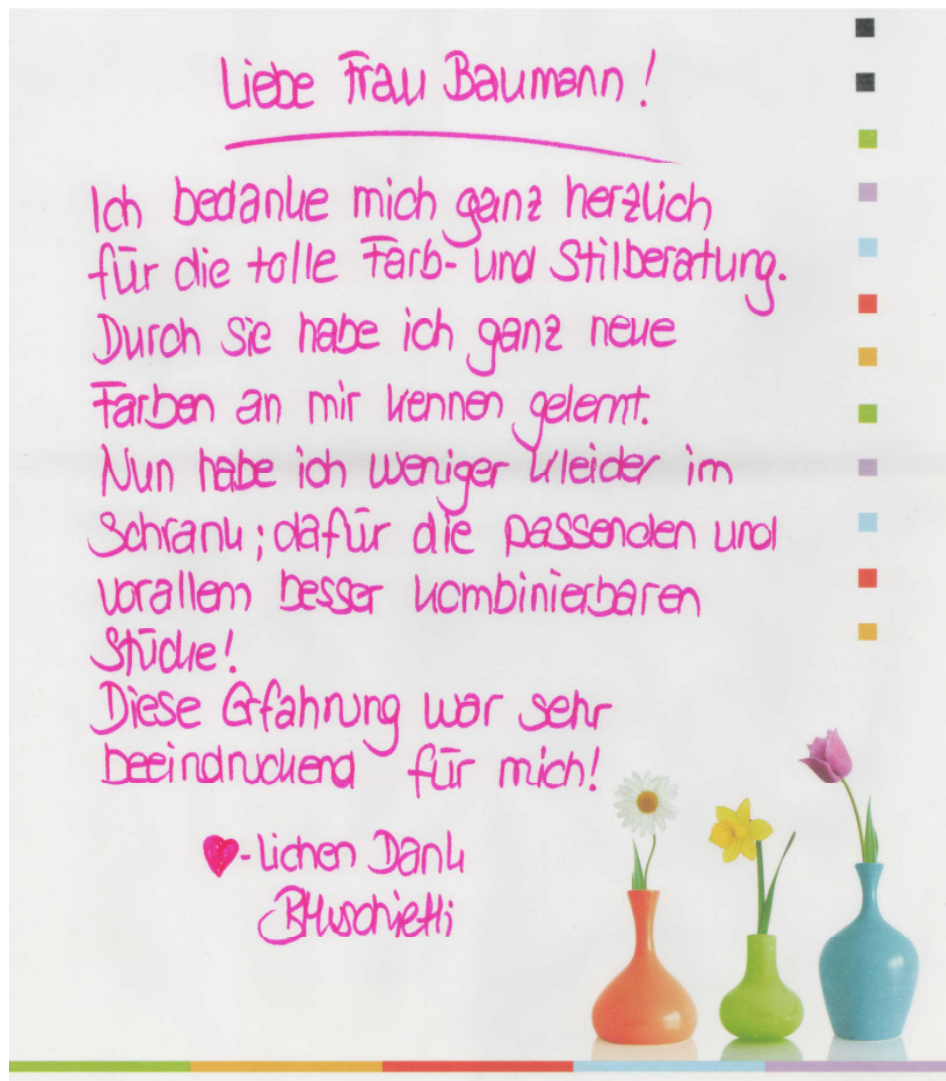 Liebe Frau Baumann!
Ich bedanke mich ganz herzlich
für die tolle Farb- und Stilberatung.
Durch Sie habe ich ganz neue
Farben an mir kennen gelernt.
Nun habe ich weniger Kleider im
Schrank; dafür die passenden und
vorallem besser kombinierbaren
Stücke!
Diese Erfahrung war sehr
beeindruckend für mich!
♥-lichen Dank